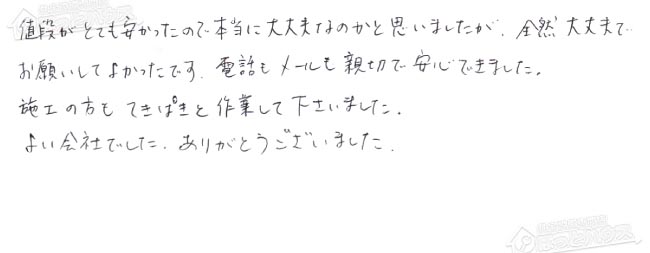 値段がとても安かったので本当に大丈夫なのかと思いましたが、全然大丈夫で
お願いしてよかったです。電話もメールも親切で安心できました。
施工の方もてきぱきと作業して下さいました。
よい会社でした。ありがとうございました。